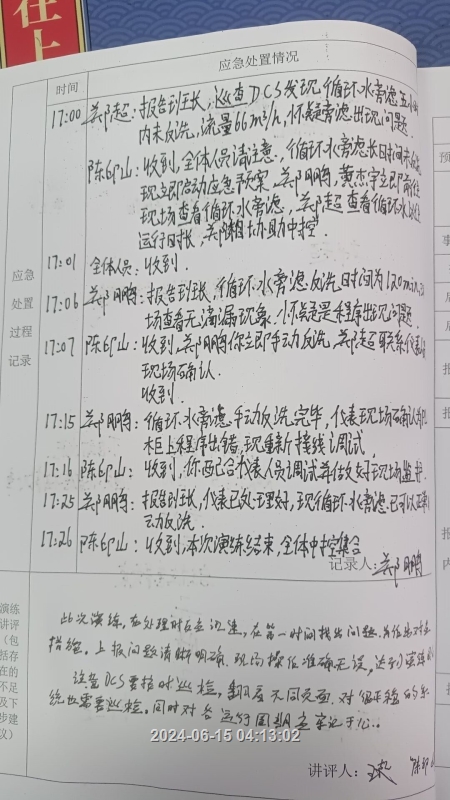 在上
应急处置情况
时间
17:00 郑超:报告班长,巡查DCS发现循环水旁滤五小时
内未反洗,流量66m³/h,怀疑旁滤出现问题.
陈邱山:收到,全体人员请注意,循环水旁滤长时间未反洗
现立即启动应急预案,郑鹏,黄杰宇立即前往
现场查看循环水旁滤,郑超查看循环水
运行时长,郑 协助中控.
17:01 全体人员:收到.
17:06 郑鹏:报告班长,循环水旁滤反洗时间为120min,现
场查看无滴漏现象.怀疑是程序出现问题.
17:07 陈邱山:收到,郑鹏你立即手动反洗,郑超联系仪表
现场确认.
收到.
17:15 郑鹏:循环水旁滤手动反洗完毕,仪表现场确认
柜上程序出错,现重新接线调试.
17:16 陈邱山:收到,你配合仪表人员调试并做好现场监护.
17:25 郑鹏:报告班长,仪表已处理好,现循环水旁滤已可以正常
动反洗.
17:26 陈邱山:收到,本次演练结束,全体中控集合
应急
处置
过程
记录
记录人:郑鹏
此次演练,在处理时反应迅速,在第一时间找出问题,并作出对应
措施.上报问题清晰明确.现场操作准确无误,达到演练
注意DCS要按时巡检,翻看不同页面.对 的系
统也需要巡检.同时对各运行周期应牢记于心.
演练
讲评
(包
括存
在的
不足
及下
步建
议)
2024-06-15 04:13:02
讲评人: